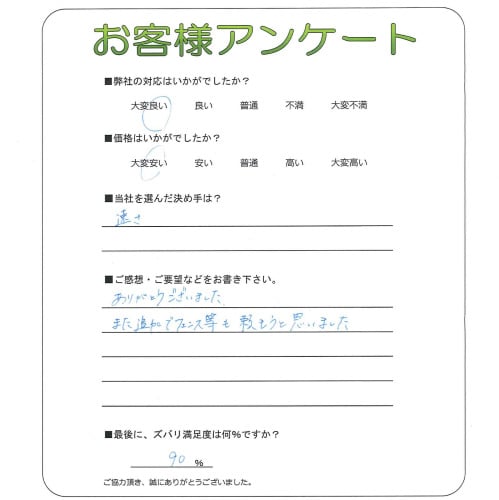 お客様アンケート
■弊社の対応はいかがでしたか？
大変良い 良い 普通 不満 大変不満
■価格はいかがでしたか？
大変安い 安い 普通 高い 大変高い
■当社を選んだ決め手は？
速さ
■ご感想・ご要望などをお書き下さい。
ありがとうございました
また追加でフェンス等も頼もうと思いました
■最後に、ズバリ満足度は何%ですか？
90 %
ご協力頂き、誠にありがとうございました。